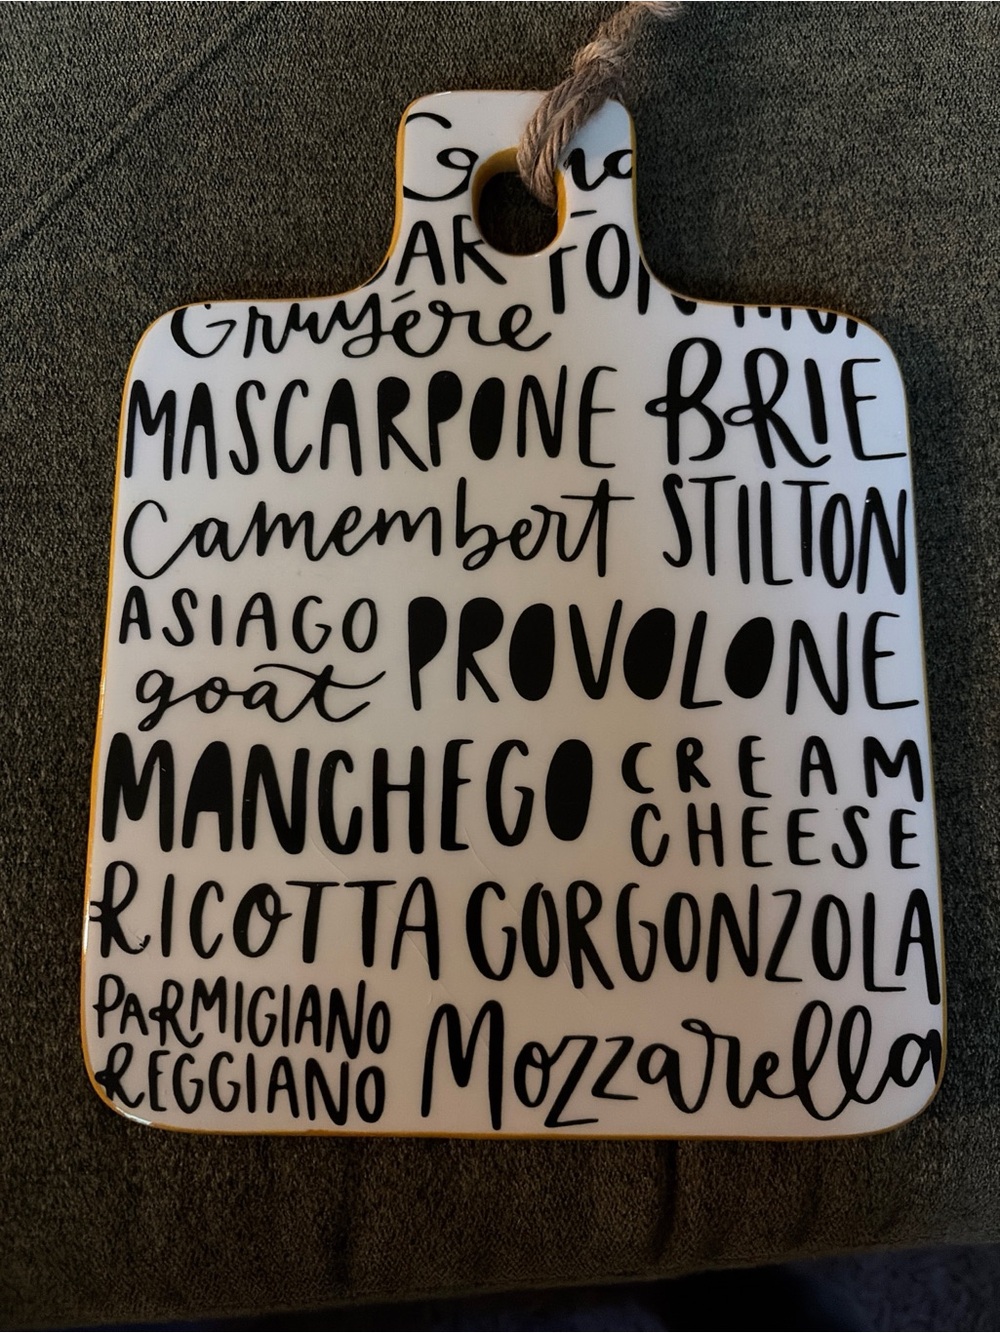 Gruyére
MASCARPONE BRIE
Camembert STILTON
ASIAGO PROVOLONE
goat
MANCHEGO CREAM
CHEESE
RICOTTA GORGONZOLA
PARMIGIANO
REGGIANO Mozzarella